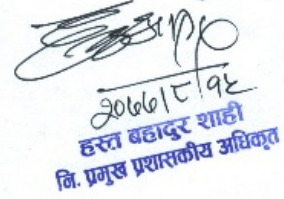 २०७७।८।१६
हस्त बहादुर शाही
नि. प्रमुख प्रशासकीय अधिकृत